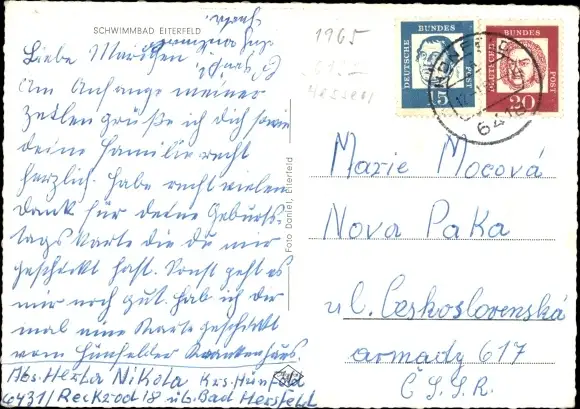 SCHWIMMBAD EITERFELD
Liebe
Am Anfange meiner
Zeilen grüße ich dich sowie
deine Familie recht
herzlich. Habe recht vielen
Dank für deine Geburts-
tagskarte die du mir
geschickt hast. Sonst geht es
mir noch gut. hab ich dir
mal eine Karte geschickt
vom Hünfelder Krankenhaus.
Abs. Herta Nikola Krs. Hünfeld
6431/Reckrod 18 üb. Bad Hersfeld
Foto Daniel, Eiterfeld
1965
DEUTSCHE BUNDES POST
15
DEUTSCHE BUNDES POST
20
Marie Mocová
Nova Paka
ul. Československá
armady 617
Č.S.S.R.